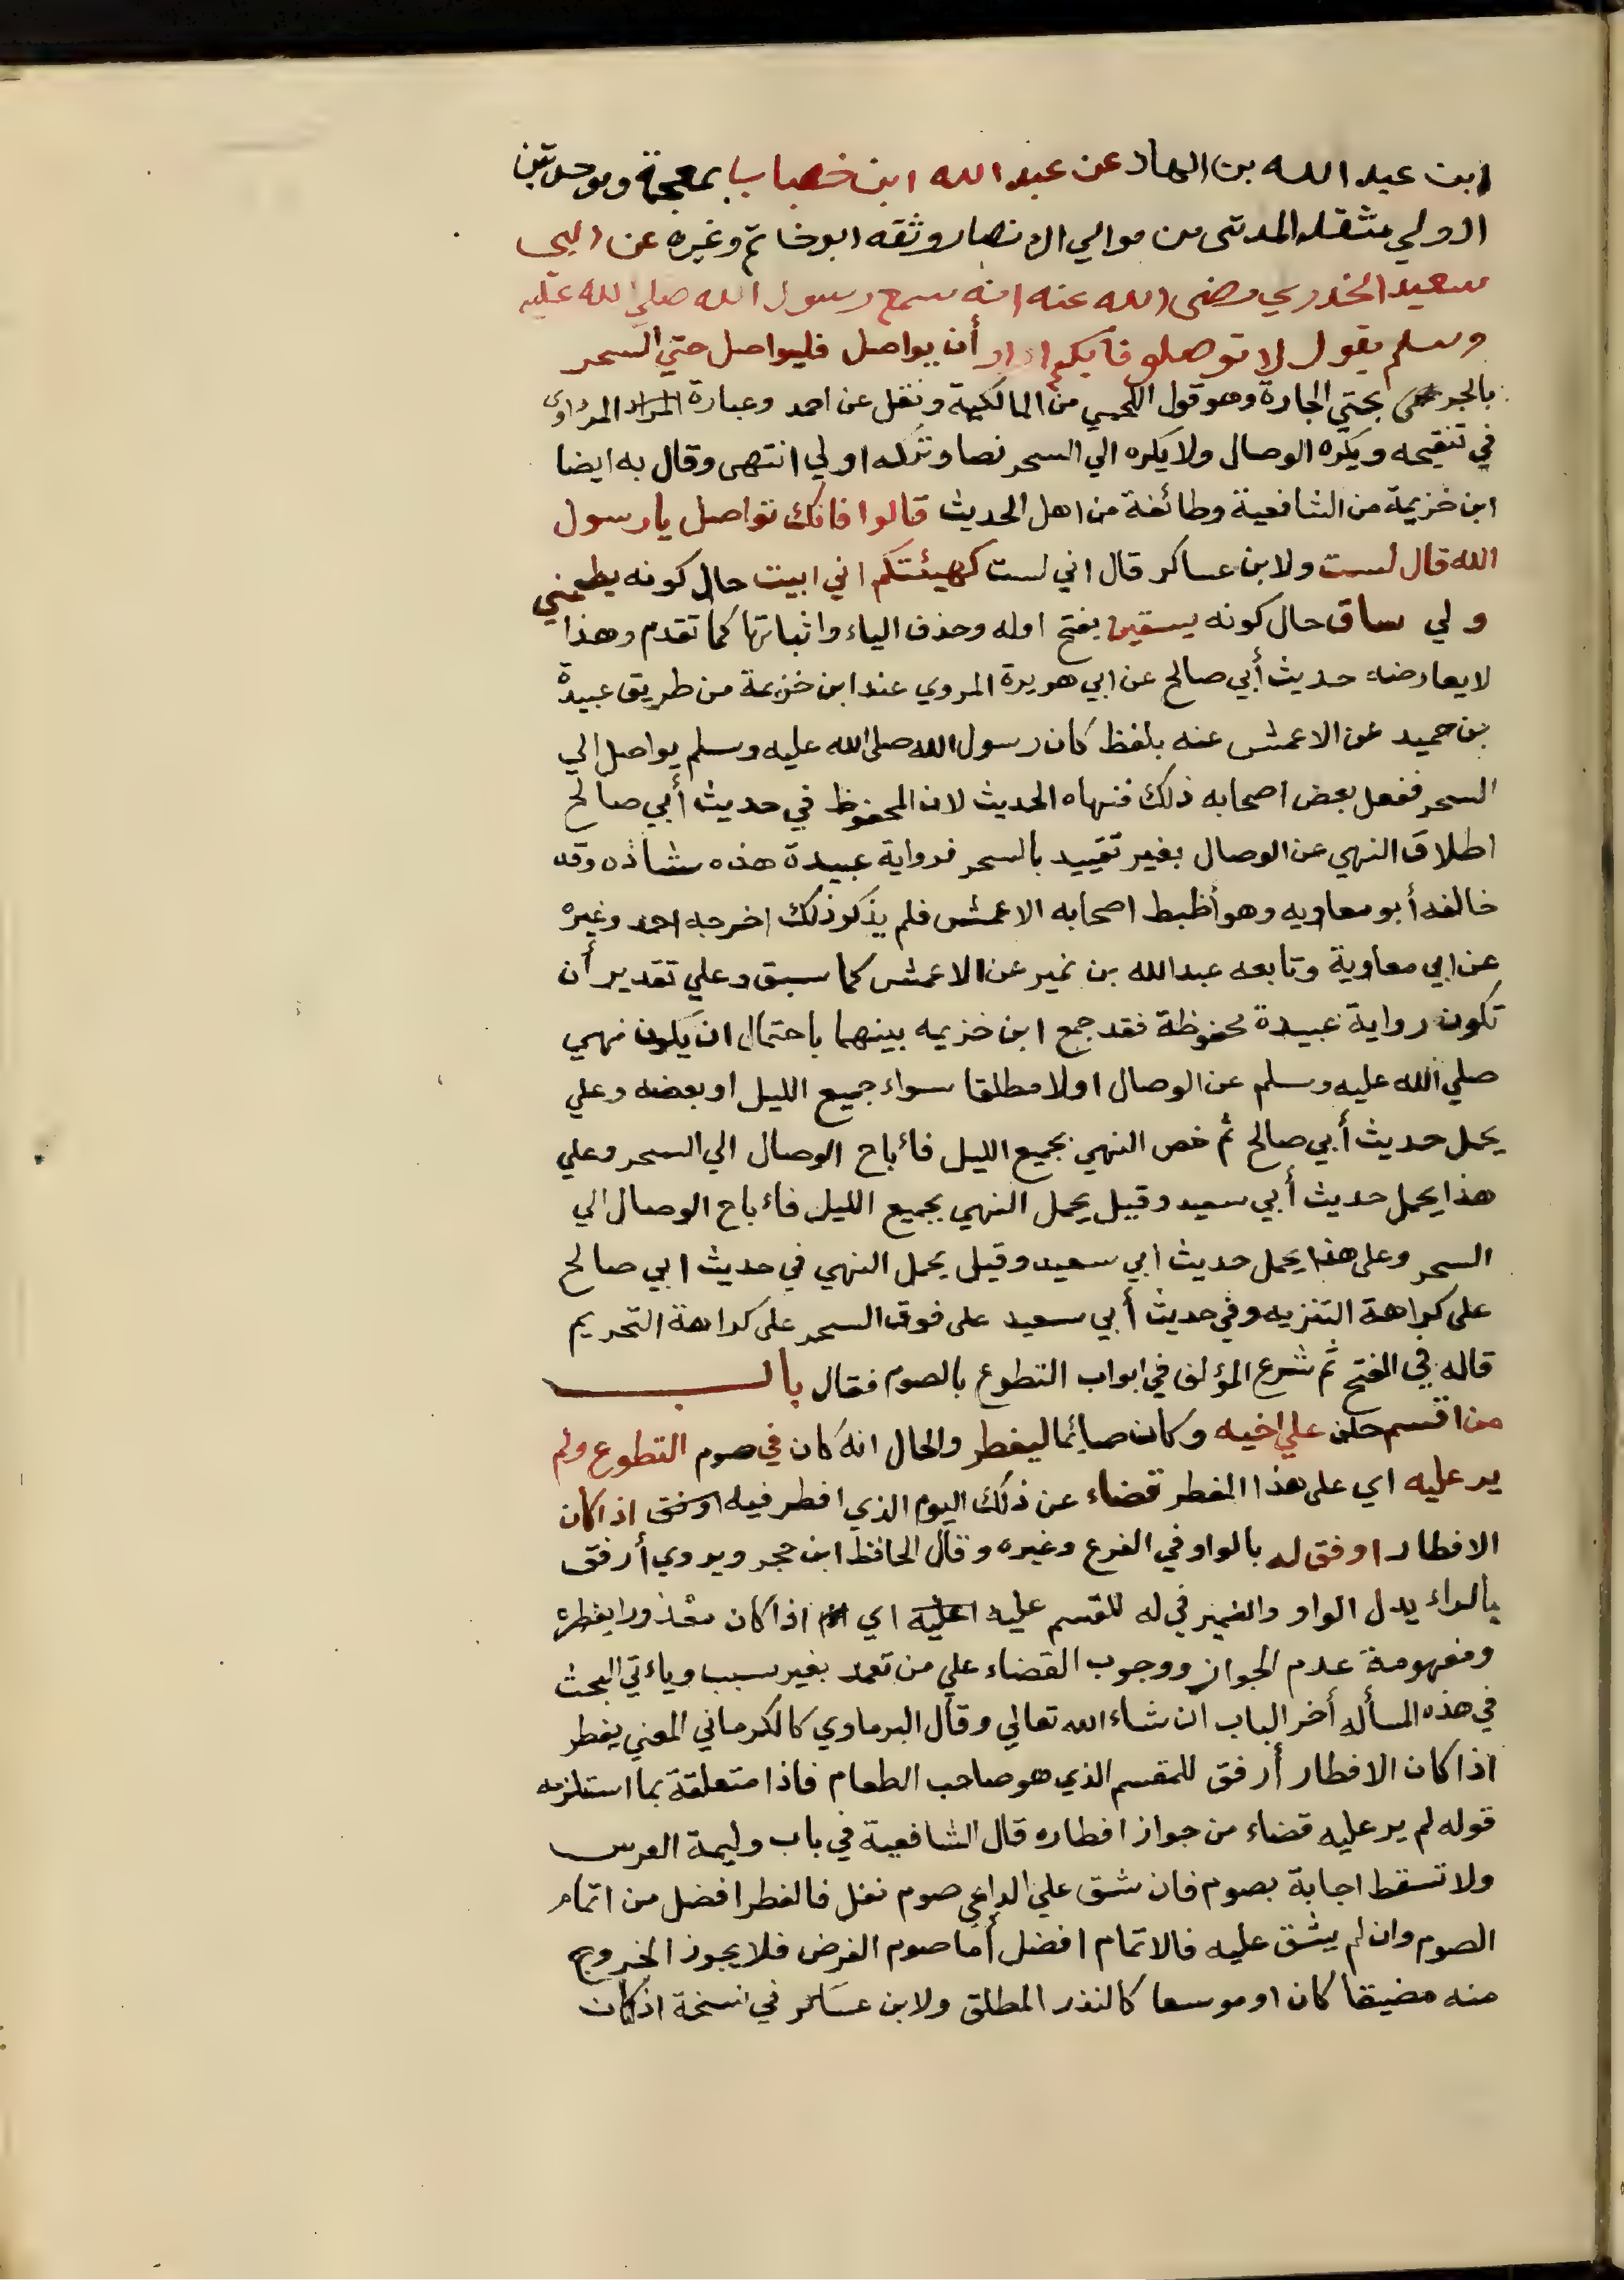 ابن عبد الله بن الهاد عن عبد الله ابن خباب بمعجمة وموحدتين
الاولي مثقلة المدني من موالي الانصار وثقه ابو حاتم وغيره عن ابي
سعيد الخدري رضي الله عنه انه سمع رسول الله صلي الله عليه
وسلم يقول لا توصلو فايكم اراد أن يواصل فليواصل حتي السحر
بالجر بحتي الجارة وهو قول اللخمي من المالكية ونقل عن احمد وعبارة المرداوي
في تنقيحه ويكره الوصال ولا يكره الي السحر نصا وتركه اولي انتهى وقال به ايضا
ابن خزيمة من الشافعية وطائفة من اهل الحديث قالوا فانك تواصل يا رسول
الله قال لست ولابن عساكر قال اني لست كهيئتكم اني ابيت حال كونه يطعمني
ولي ساق حال كونه يسقين بفتح اوله وحذف الياء واثباتها كما تقدم وهذا
لا يعارضه حديث أبي صالح عن ابي هويرة المروي عند ابن خزيمة من طريق عبيدة
بن حميد عن الاعمش عنه بلفظ كان رسول الله صلى الله عليه وسلم يواصل الي
السحر ففعل بعض اصحابه ذلك فنهاه الحديث لان المحفوظ في حديث أبي صالح
اطلاق النهي عن الوصال بغير تقييد بالسحر فرواية عبيدة هذه شاذه وقد
خالفه أبو معاويه وهو أظبط اصحابه الاعمش فلم يذكر ذلك اخرجه احمد وغيره
عن ابي معاوية وتابعه عبد الله بن نمير عن الاعمش كما سبق وعلي تقدير أن
تكون رواية عبيدة محفوظة فقد جمع ابن خزيمه بينهما باحتمال ان يكون نهي
صلي الله عليه وسلم عن الوصال اولا مطلقا سواء جميع الليل او بعضه وعلي
يحمل حديث أبي صالح ثم خص النهي بجميع الليل فأباح الوصال الي السحر وعلي
هذا يحمل حديث أبي سعيد وقيل يحمل النهي بجميع الليل فأباح الوصال الي
السحر وعلى هذا يحمل حديث ابي سعيد وقيل يحمل النهي في حديث ابي صالح
على كراهة التنزيه وفي حديث أبي سعيد على فوق السحر على كراهة التحريم
قاله في الفتح ثم شرع المؤلف في ابواب التطوع بالصوم فقال باب
من اقسم حلف علي اخيه وكان صائما ليفطر والحال انه كان في صوم التطوع ولم
ير عليه اي على هذا المفطر قضاء عن ذلك اليوم الذي افطر فيه اوفق اذا كان
الافطار اوفق له بالواو في الفرع وغيره وقال الحافظ ابن حجر ويروي أرفق
بالراء بدل الواو والضمير في له للمقسم عليه اي اذا كان معذورا بفطره
ومفهومة عدم الجواز ووجوب القضاء علي من تعمد بغير سبب ويأتي البحث
في هذه المسأله أخر الباب ان شاء الله تعالي وقال البرماوي كالكرماني المعني يفطر
اذا كان الافطار أرفق للمقسم الذي هو صاحب الطعام فاذا متعلقة بما استلزمه
قوله لم ير عليه قضاء من جواز افطاره قال الشافعية في باب وليمة العرس
ولا تسقط اجابة بصوم فان شق علي الداعي صوم نفل فالفطر افضل من اتمام
الصوم وان لم يشق عليه فالاتمام افضل أما صوم الفرض فلا يجوز الخروج
منه مضيقا كان او موسعا كالنذر المطلق ولابن عساكر في نسخة اذ كان